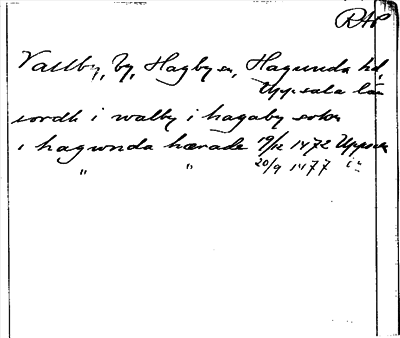 RAP
Vallby, by, Hagby sn, Hagunda hd,
Uppsala län
iordh i walby i hagaby sokn
i hagwnda hærade 19/12 1472 Uppsala
" " 20/9 1477